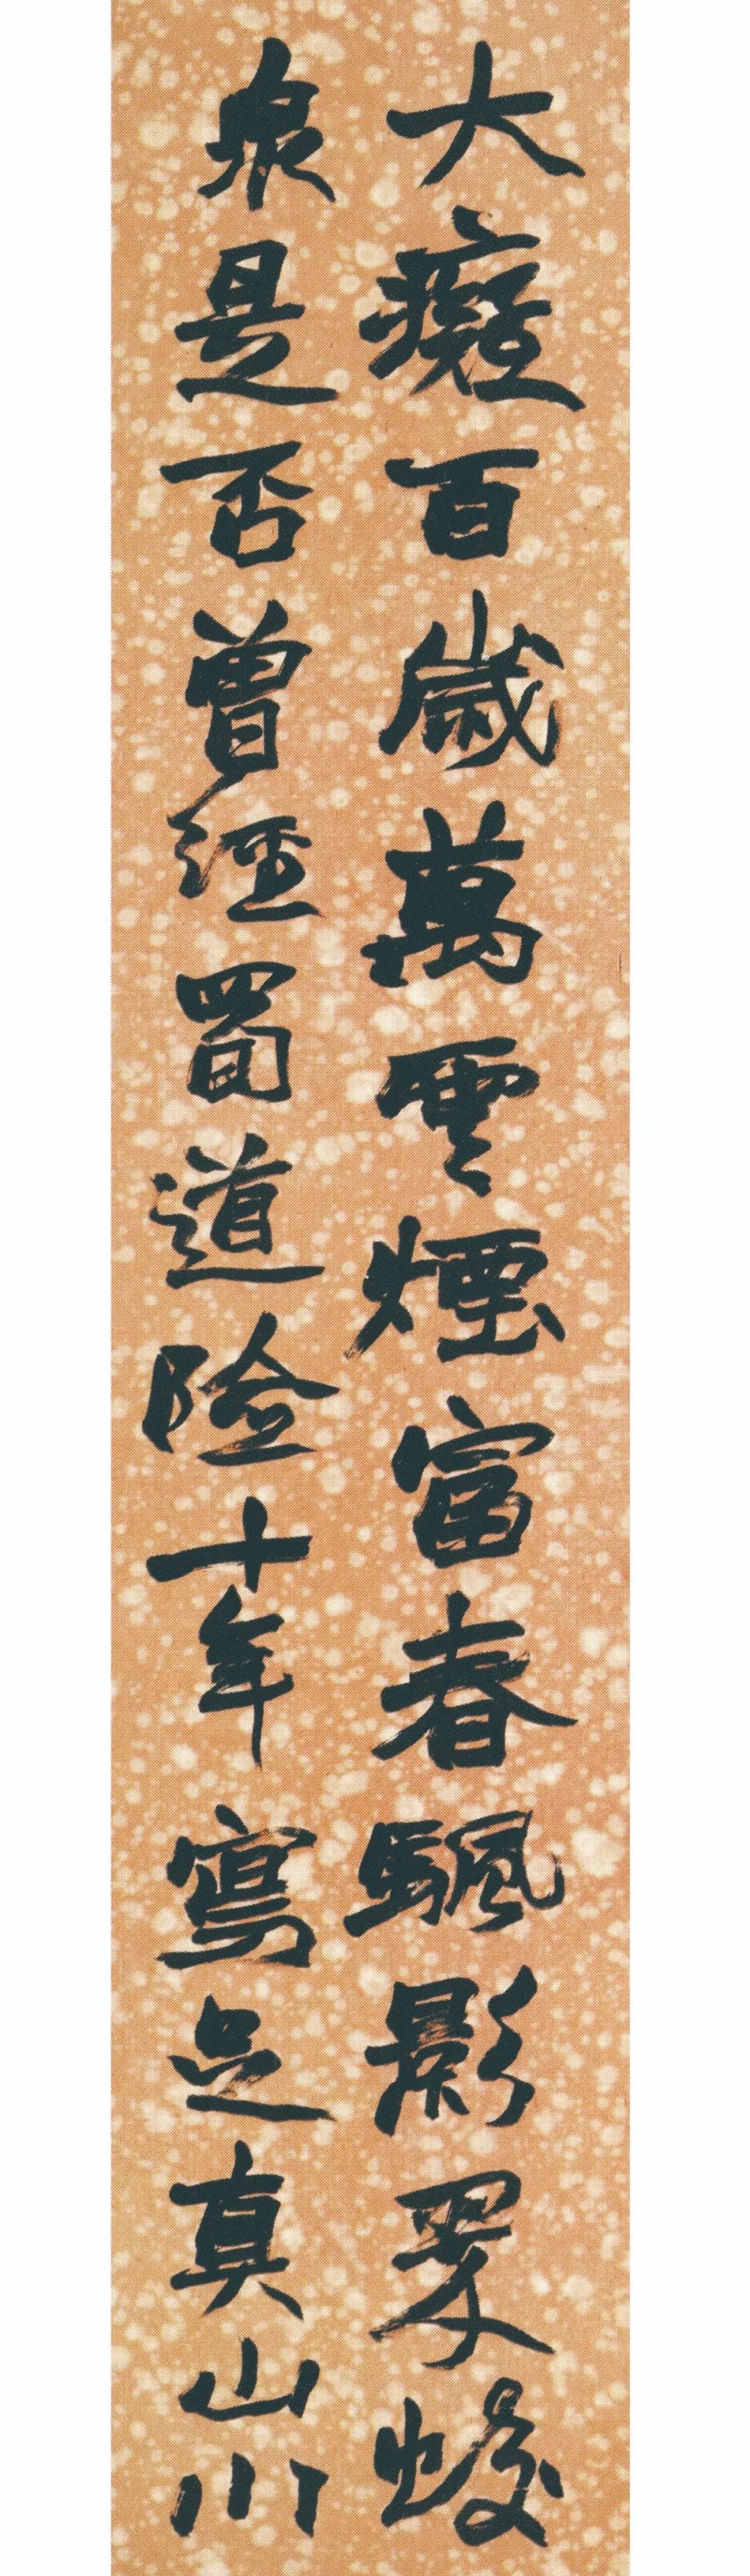 大癡百歲萬雲煙富春颿影蛟
泉是否曾經蜀道險十年寫足真山川